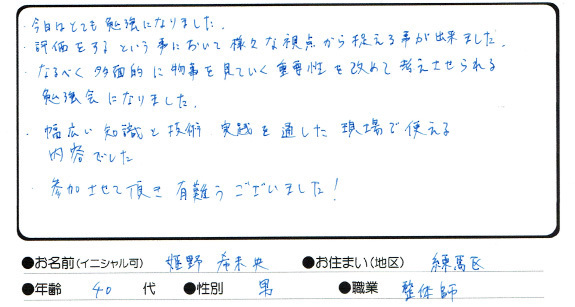 ・今日はとても勉強になりました。
・評価をするという事において様々な視点から捉える事が出来ました。
・なるべく多面的に物事を見ていく重要性を改めて考えさせられる
勉強会になりました。
・幅広い知識と技術 実践を通した現場で使える
内容でした
・参加させて頂き有難うございました！
●お名前(イニシャル可) 姫野 希未央 ●お住まい(地区) 練馬区
●年齢 40 代 ●性別 男 ●職業 整体師